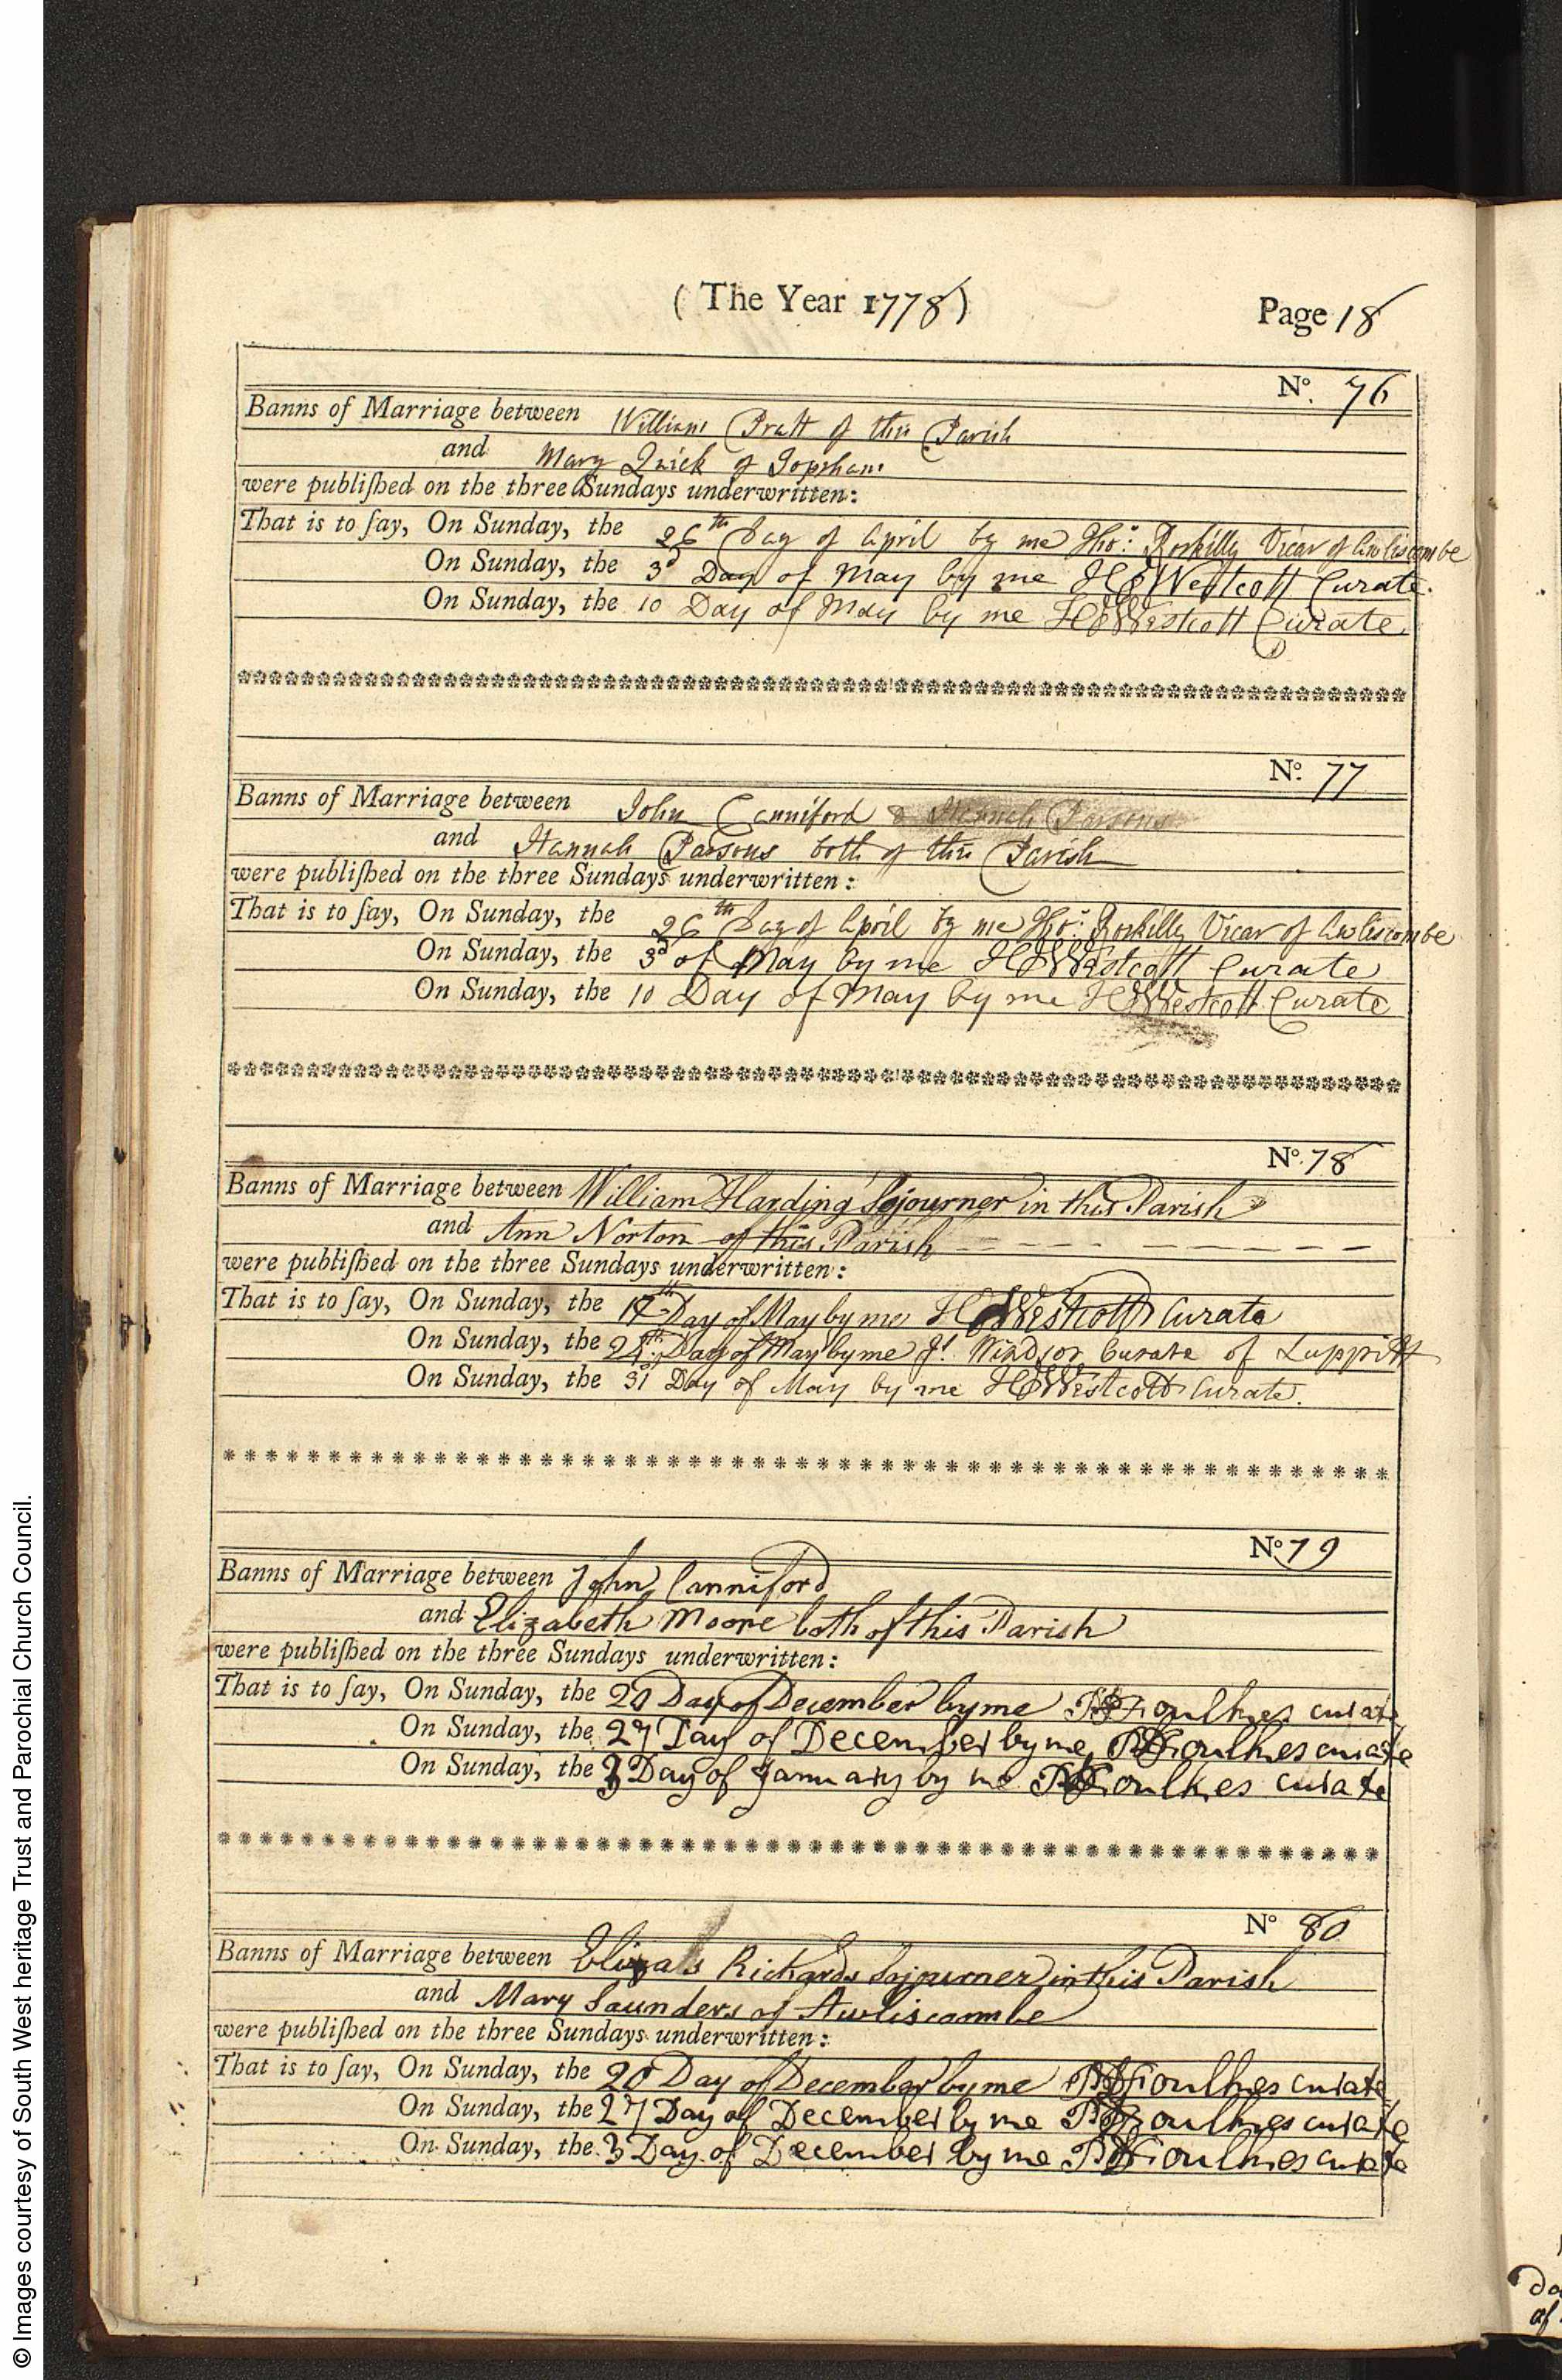 ( The Year 1778)
Page 18
No. 76
Banns of Marriage between William Pratt of this Parish
and Mary Quick of Topsham
were publiſhed on the three Sundays underwritten:
That is to ſay, On Sunday, the 26th Day of April by me Tho: Roskilly Vicar of Awliscombe
On Sunday, the 3d Day of May by me Westcott Curate.
On Sunday, the 10 Day of May by me Westcott Curate
No. 77
Banns of Marriage between John Canniford & Hannah Parsons
and Hannah Parsons both of this Parish
were publiſhed on the three Sundays underwritten:
That is to ſay, On Sunday, the 26th Day of April by me Tho: Roskilly Vicar of Awliscombe
On Sunday, the 3d of May by me Westcott Curate
On Sunday, the 10 Day of May by me Westcott Curate
No. 78
Banns of Marriage between William Harding Sojourner in this Parish
and Ann Norton of this Parish
were publiſhed on the three Sundays underwritten:
That is to ſay, On Sunday, the 17th Day of May by me Westcott Curate
On Sunday, the 24th Day of May by me Windsor Curate of Luppitt
On Sunday, the 31 Day of May by me Westcott Curate.
No 79
Banns of Marriage between John Canniford
and Elizabeth Moore both of this Parish
were publiſhed on the three Sundays underwritten:
That is to ſay, On Sunday, the 20 Day of December by me Foulkes curate
On Sunday, the 27 Day of December by me Foulkes curate
On Sunday, the 3 Day of January by me Foulkes curate
No 80
Banns of Marriage between Richards Sojourner in this Parish
and Mary Saunders of Awliscombe
were publiſhed on the three Sundays underwritten:
That is to ſay, On Sunday, the 20 Day of December by me Foulkes curate
On Sunday, the 27 Day of December by me Foulkes curate
On Sunday, the 3 Day of December by me Foulkes curate
© Images courtesy of South West heritage Trust and Parochial Church Council.